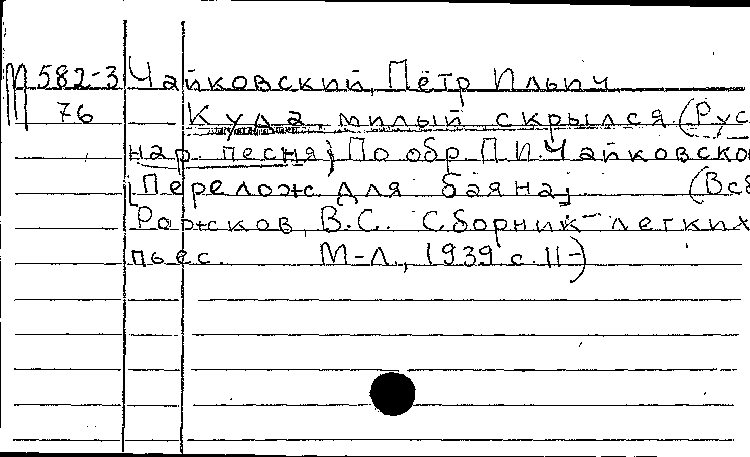 М 582-3 Чайковский, Пётр Ильич
76 Куда милый скрылся (Рус
нар. песня) По обр. П.И.Чайковско
[Перелож. для баяна] (Вса
Рожков, В.С. Сборник легких
пьес. М-Л., 1939 с. 11-)